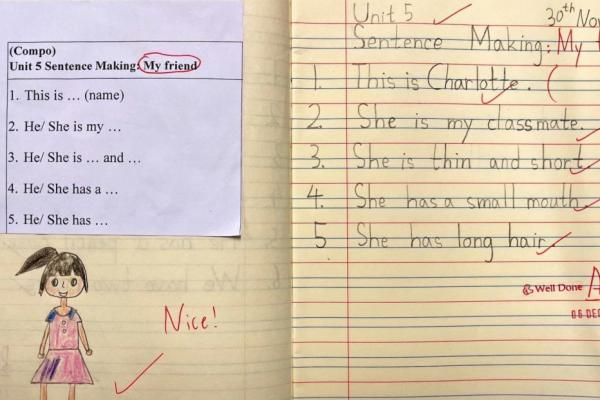 (Compo)
Unit 5 Sentence Making: My friend
1. This is … (name)
2. He/ She is my …
3. He/ She is … and …
4. He/ She has a …
5. He/ She has …
Nice!
Unit 5
30th Nov
Sentence Making: My
1. This is Charlotte. (
2. She is my classmate.
3. She is thin and short.
4. She has a small mouth.
5 She has long hair.
Well Done A
06 DEC